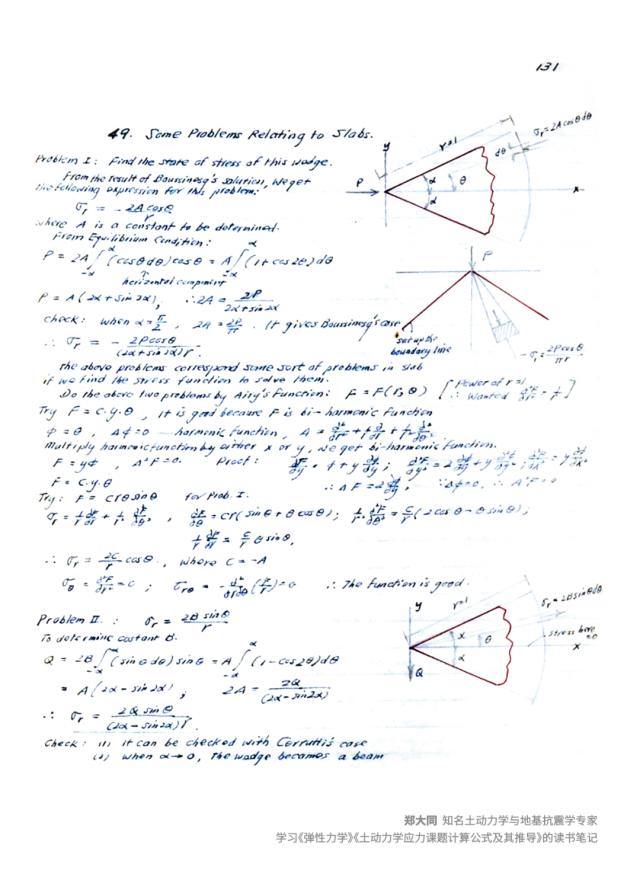 131
49. Some Problems Relating to Slabs.
Problem I: Find the state of stress of this wadge.
From the result of Boussinesq's solution, we get
the following expression for this problem:
σr = - 2A cosθ / r
where A is a constant to be determined.
From Equilibrium Condition:
P = 2A ∫_{-α}^{α} (cosθ dθ) cosθ = A ∫_{-α}^{α} (1 + cos2θ) dθ
horizontal component
P = A (2α + sin2α), ∴ 2A = 2P / (2α + sin2α)
check: when α = π/2, 2A = 2P/π. (It gives Boussinesq's case
∴ σr = - 2P cosθ / (2α + sin2α) r
The above problems correspond some sort of problems in slab
if we find the stress function to solve them.
Do the above two problems by Airy's Function: F = F(r, θ) [Power of r = 1
∴ Wanted ]
Try F = c·y·θ, it is good because F is bi-harmonic Function
φ = θ, Δφ = 0 — harmonic function,
Multiply harmonic function by either x or y, we get bi-harmonic function.
F = yφ, Δ²F = 0. Proof:
F = c·y·θ
Try: F = Crθ sinθ for Prob. I.
∴ σr = 2C/r cosθ, where C = -A
∴ The function is good.
Problem II.: σr = 2B sinθ / r
To determine costant B.
Q = 2B ∫_{-α}^{α} (sinθ dθ) sinθ = A ∫_{-α}^{α} (1 - cos2θ) dθ
= A (2α - sin2α); 2A = 2Q / (2α - sin2α)
∴ σr = 2Q sinθ / (2α - sin2α) r
Check: (1) it can be checked with Cerrutti's case
(2) when α → 0, the wadge becomes a beam
y
r=1
dθ
σr = 2A cosθ dθ
P
α
θ
α
x
P
set up the
boundary line
y
r=1
σr = 2B sinθ dθ
α
θ
α
stress here
=0
x
Q
郑大同 知名土动力学与地基抗震学专家
学习《弹性力学》《土动力学应力课题计算公式及其推导》的读书笔记